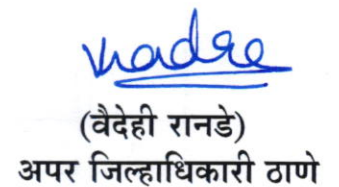 (वैदेही रानडे)
अपर जिल्हाधिकारी ठाणे